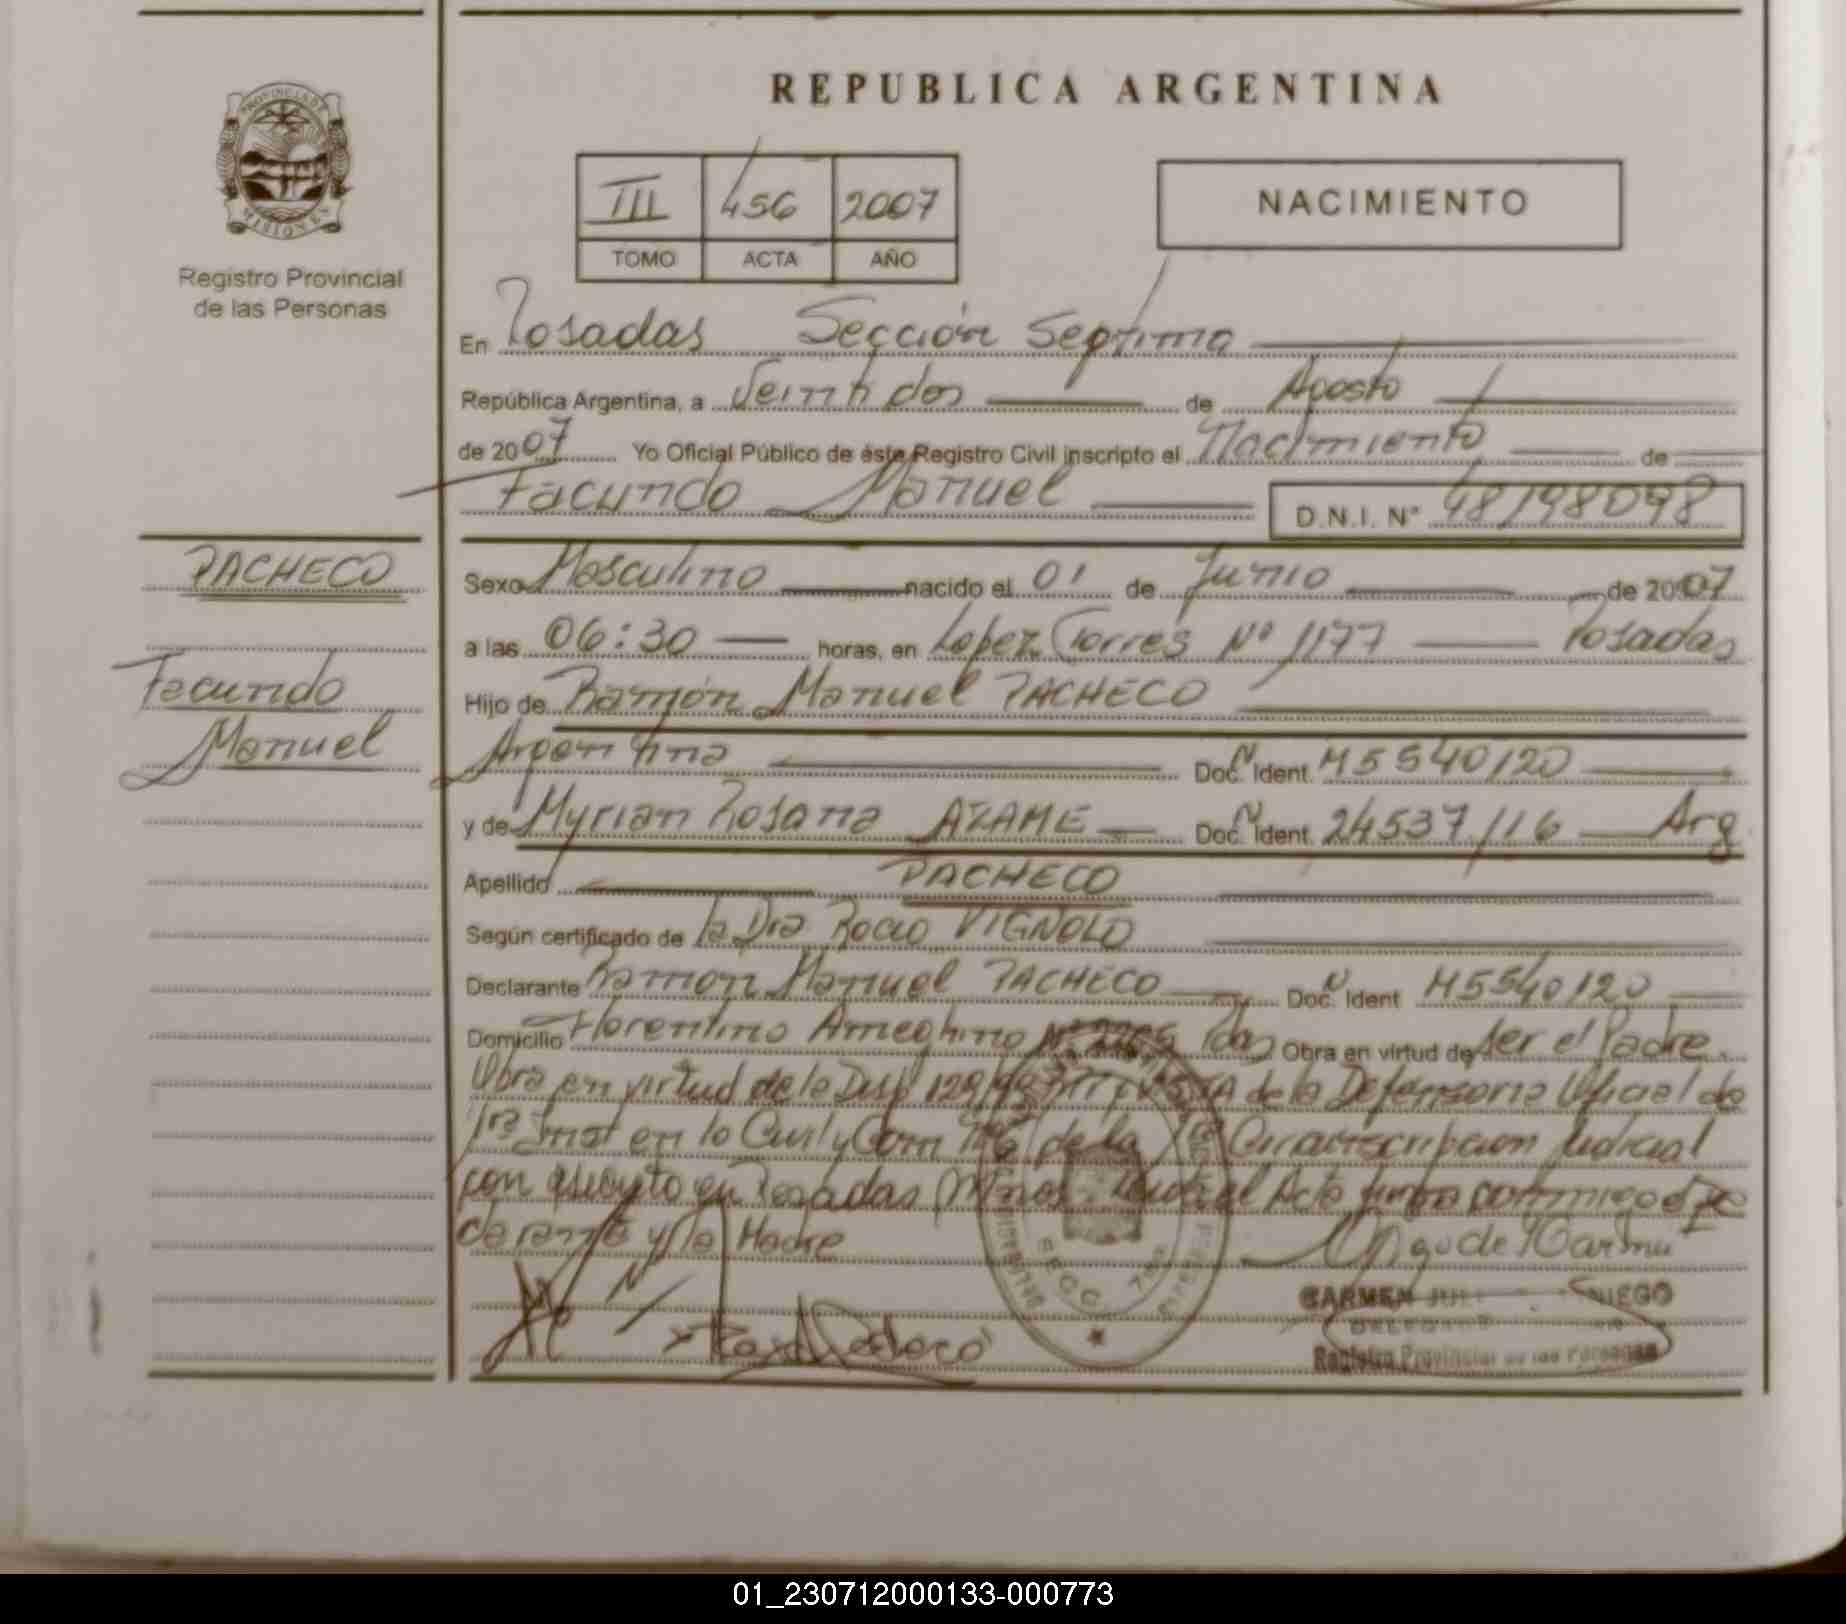 REPUBLICA ARGENTINA
PROVINCIA DE
MISIONES
Registro Provincial
de las Personas
III 456 2007
TOMO ACTA AÑO
NACIMIENTO
En Posadas Sección Septima
República Argentina, a Veintidos de Agosto
de 2007 Yo Oficial Público de éste Registro Civil inscripto el Nacimiento de
Facundo Manuel D.N.I. N° 48198098
PACHECO
Facundo
Manuel
Sexo Masculino nacido el 01 de Junio de 2007
a las 06:30 horas, en Lopez Torres N° 1177 Posadas
Hijo de Ramón Manuel PACHECO
Argentina Doc. N Ident. M5540120
y de Myrian Rosana AYAME Doc. N Ident. 24537116 Arg
Apellido PACHECO
Según certificado de la Dra Rocio VIGNOLO
Declarante Ramon Manuel PACHECO Doc. N Ident M5540120
Domicilio Florentino Ameghino N° Pdas Obra en virtud de ser el Padre.
Obra en virtud de la Disp 129/99 de la Defensoria Oficial de
1ra Inst en lo Civil y Com N°6 de la 1ra Circunscripcion Judicial
con asiento en Posadas Mnes. el Acto firma conmigo el De
clarante y la Madre
SECC. 7ma
CARMEN NIEGO
DELEGADA
Registro Provincial de las Personas
01_230712000133-000773